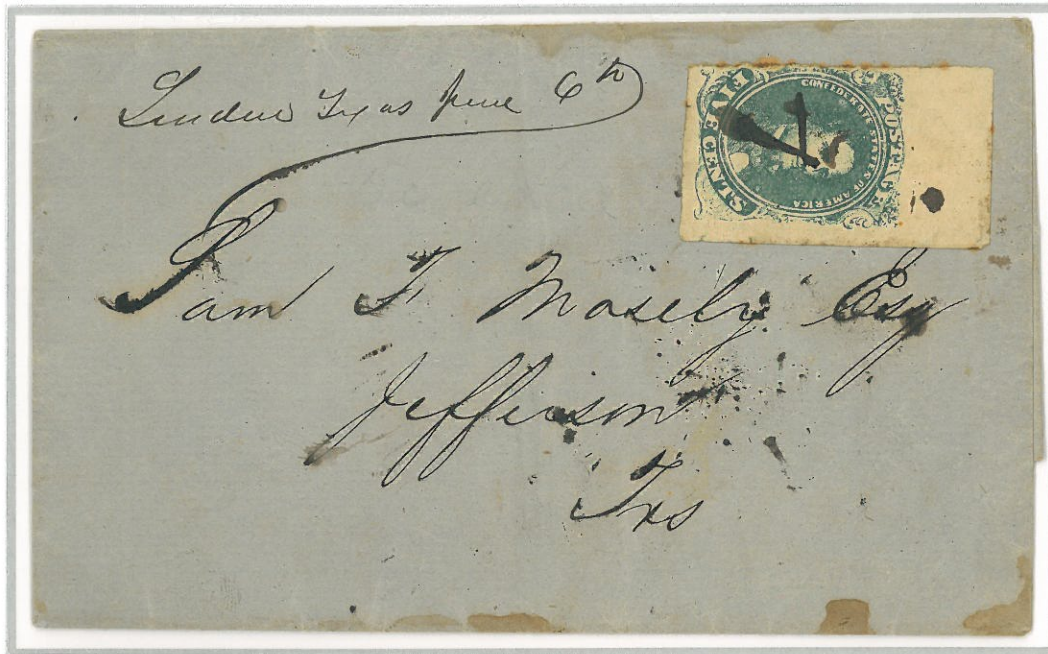 Linden Texas June 6th
FIVE CENTS
CONFEDERATE STATES OF AMERICA
POSTAGE
Sam F. Mosely Esq
Jefferson
Txs